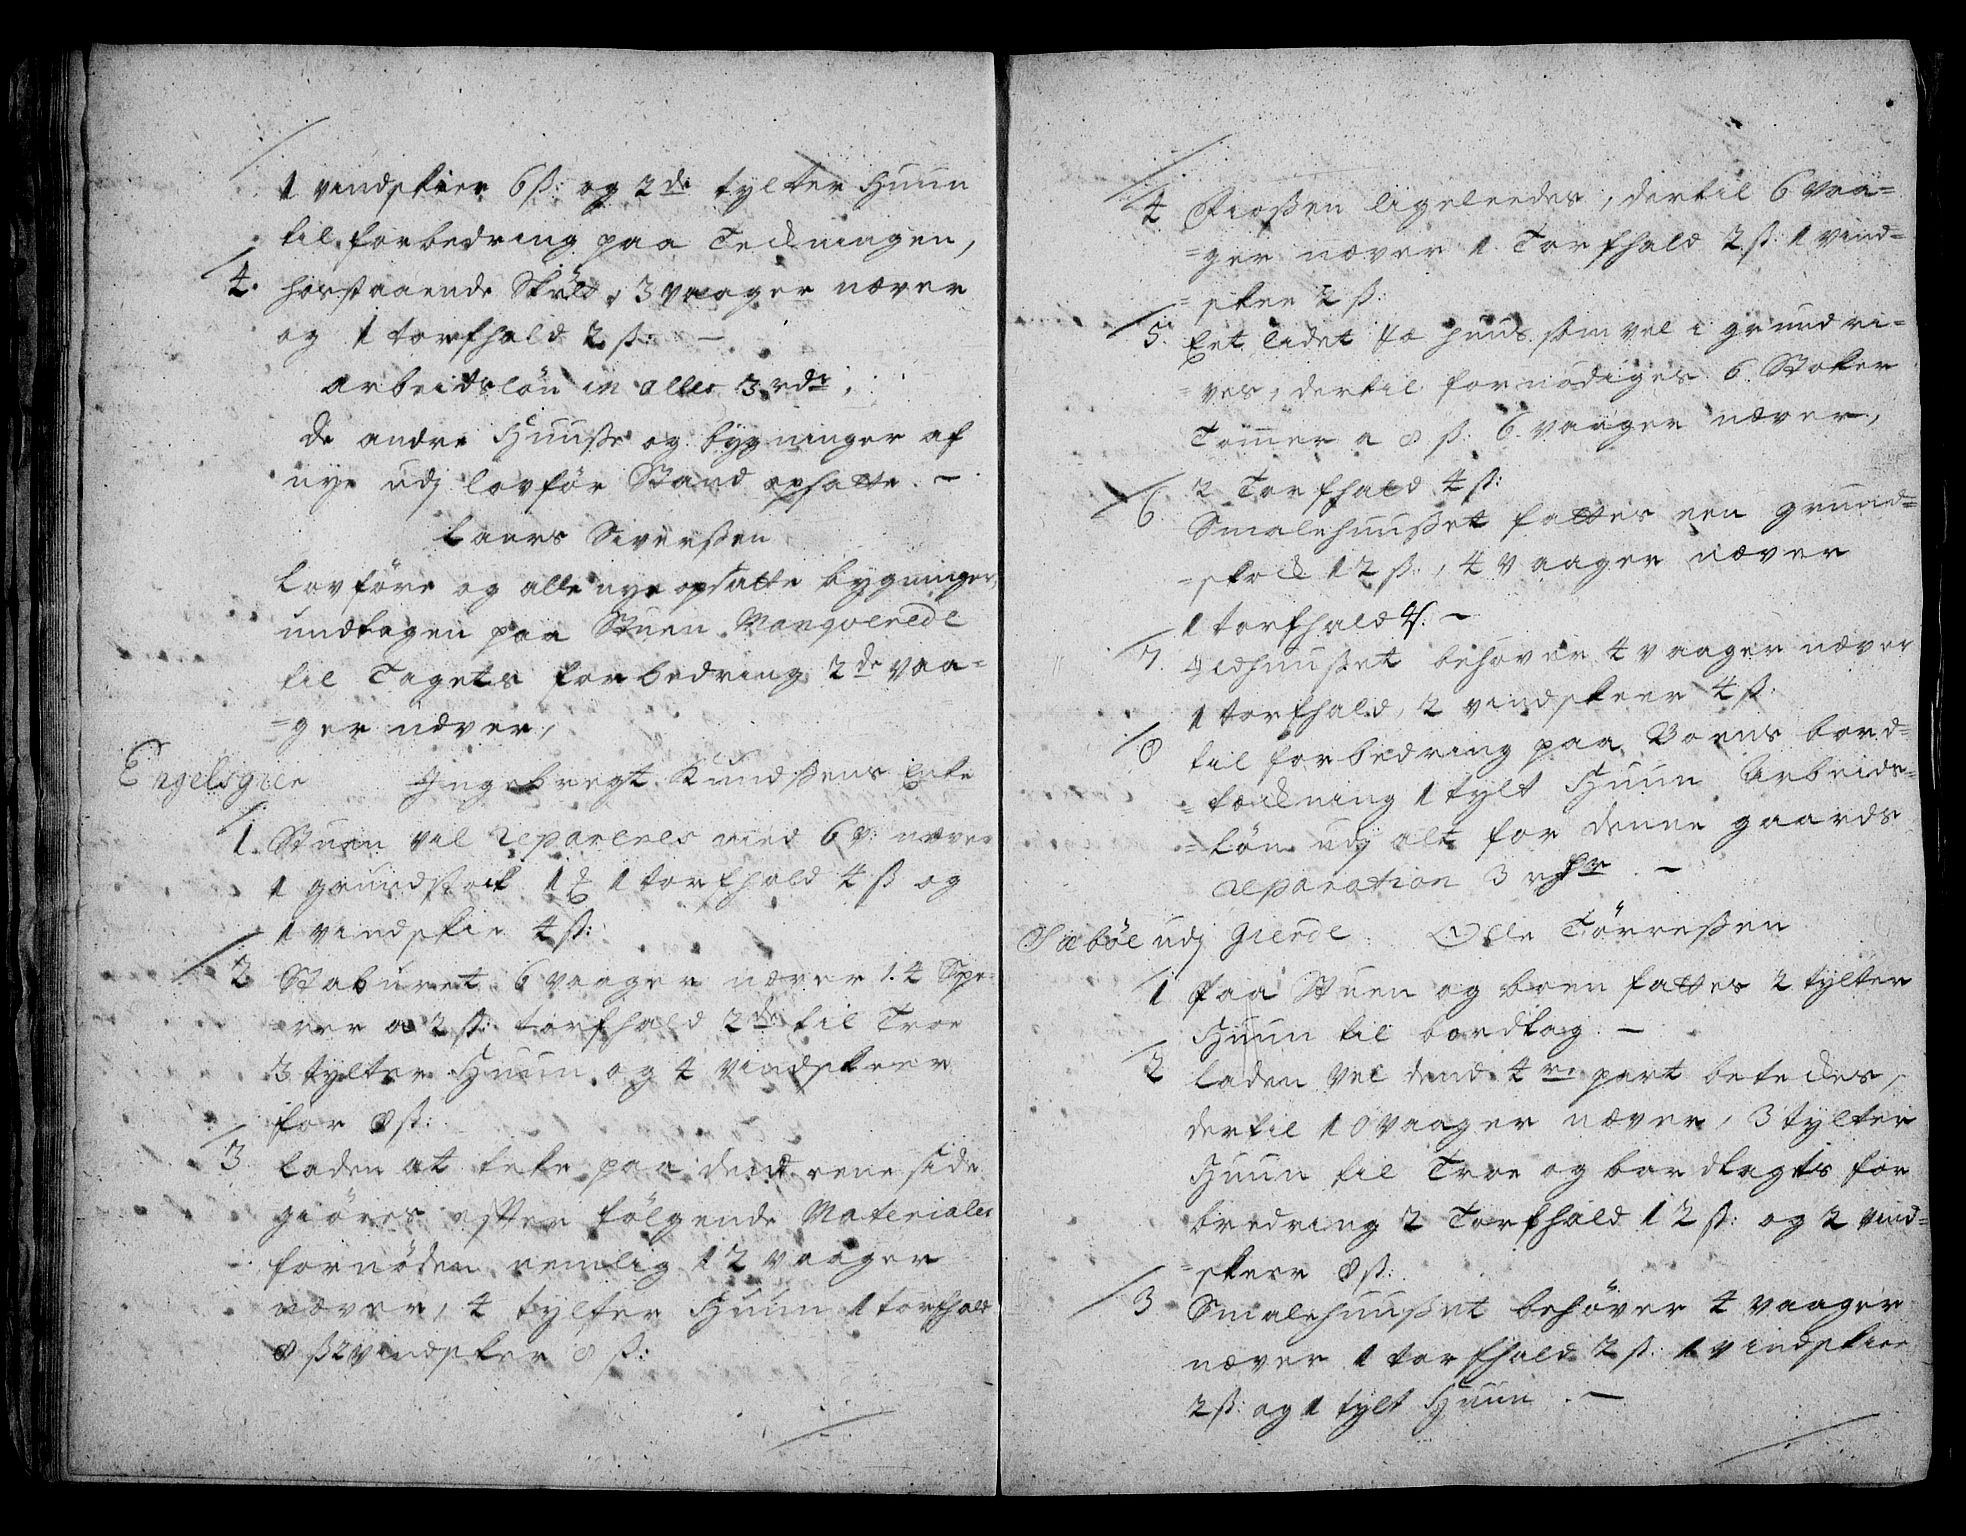 1 vindskier 6 ß: og 2de tylter Huun
til forbedring paa Teckningen,
4. hosstaaende Skuld, 3 vaager næver
og 1 torfhald 2 ß: –
Arbeidsløn in alles 3 rdr.
de andre Huuse og bygninger af
nye udj lovför Stand opsatte. –
Laers Sivertßen
Lovföre og alle nye opsatte bygninger,
undtagen paa Stuen Manqverede
til Tagets forbedring 2de vaa=
=ger næver,
Engelsgier Ingebregt Knudßens Enke
1. Stuen vel repareres med 6 v: næver
1 grundstock 1 ₰ 1 torfhald 4 ß og
1 vindskie 4 ß:
2 Staburet 6 vaager næver 1.4 Spe=
rer a 2 ß: torfhald 2de til Troe
3 tylter Huun og 4 vindskeer
for 8 ß:
3 Laden at teke paa dend ene side
giöres efter fölgende Materialer
fornöden nemlig 12 vaager
næver, 4 tylter Huun 1 torfhald
8 ß 2 vindsker 8 ß:
4 Fioßen ligeleedes, dertil 6 vaa=
=ger næver 1 Torfhald 2 ß: 1 vind=
=skee 2 ß:
5. Eet lidet fæ huus som vel i grund ri=
=ves, dertil fornödiges 6 Stoker
Tömer a 8 ß: 6 vaager næver,
2 Torfhald 4 ß:
6 Smalehuußet fattes een grund=
=stock 12 ß:, 4 vaager næver
1 torfhald 4 ß. –
7. Ildhuußet behöver 4 vaager næver
1 torfhald, 2 vindskeer 4 ß.
8 til forbedring paa Boens bord=
=tæckning 1 tylt Huun Arbeids=
=løn udj alt for denne gaards
reparation 3 rdr. –
Sæböe udj Gierde. Olle Törreßen
1 Paa Stuen og boen fattes 2 tylter
Huun til bordtag. –
2 Laden vel dend 4re part betekes,
dertil 10 vaager næver, 3 tylter
Huun til Troe og bordtagts for
bedring 2 Torfhald 12 ß: og 2 vind=
=skeer 8 ß:
3 Smalehuußet behöver 4 vaager
næver 1 torfhald 2 ß: 1 vindskiee
2 ß: og 1 tylt Huun. –